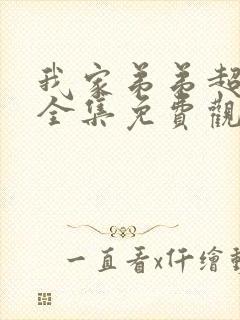 我家弟弟超
全集免費觀
一直看x仟繪動